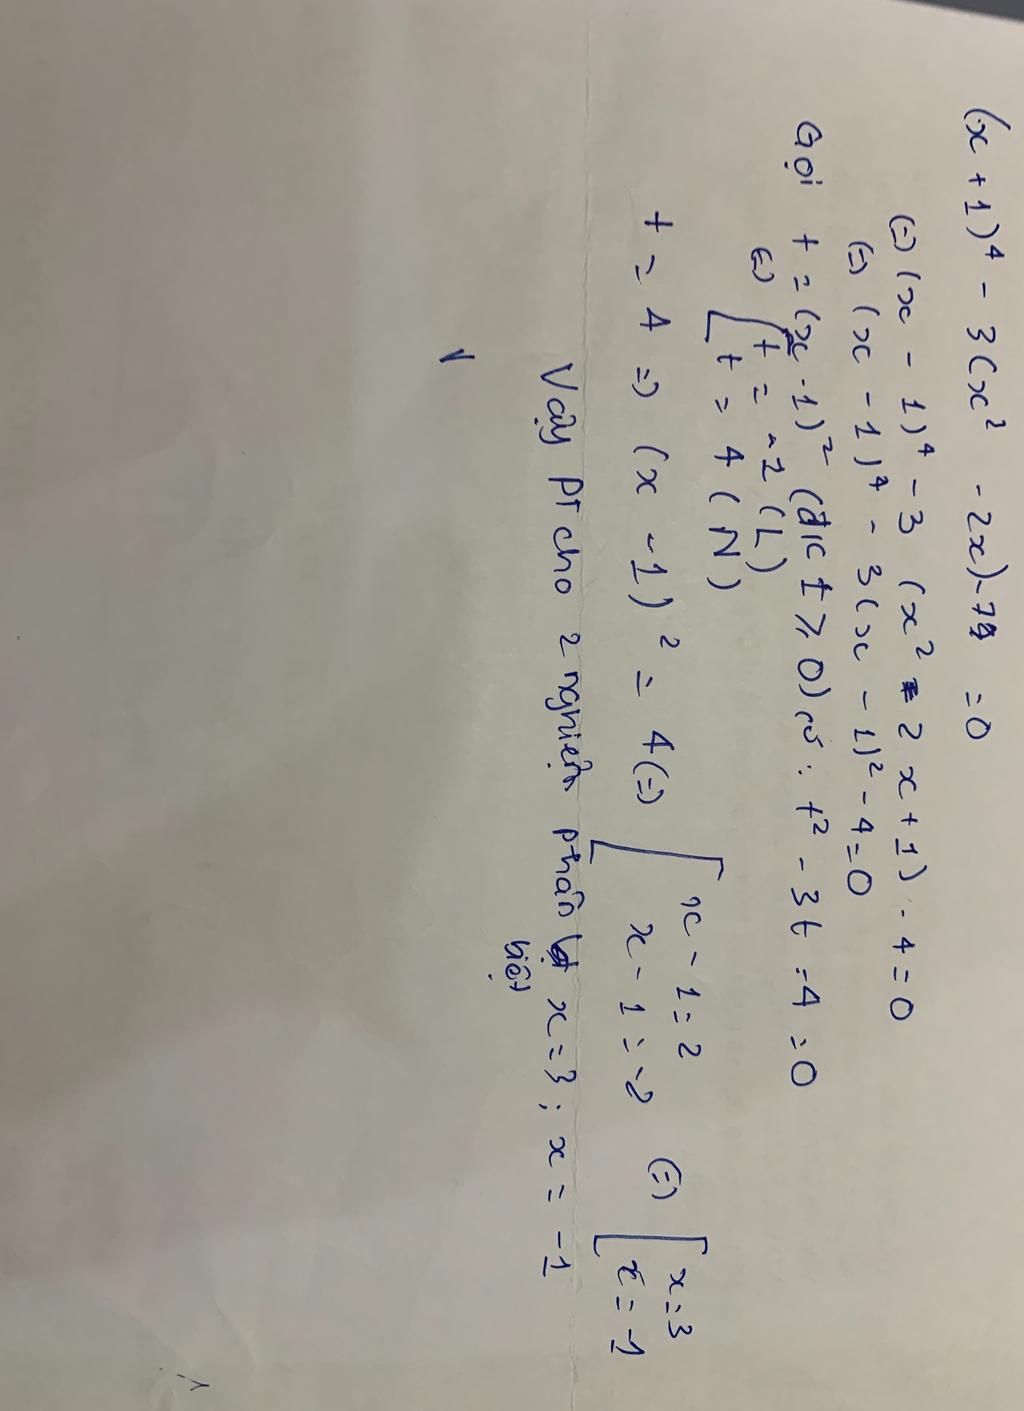 (x + 1)⁴ - 3(x² - 2x) - 7 = 0
(=) (x - 1)⁴ - 3 (x² - 2x + 1) - 4 = 0
(=) (x - 1)⁴ - 3(x - 1)² - 4 = 0
Gọi t = (x - 1)² (đk t ⩾ 0) có : t² - 3t - 4 = 0
(=) [ t = -1 (L)
t = 4 (N)
t = 4 => (x - 1)² = 4 (=) [ x - 1 = 2 (=) [ x = 3
x - 1 = -2 x = -1
Vậy PT cho 2 nghiệm phân x = 3 ; x = -1
biệt